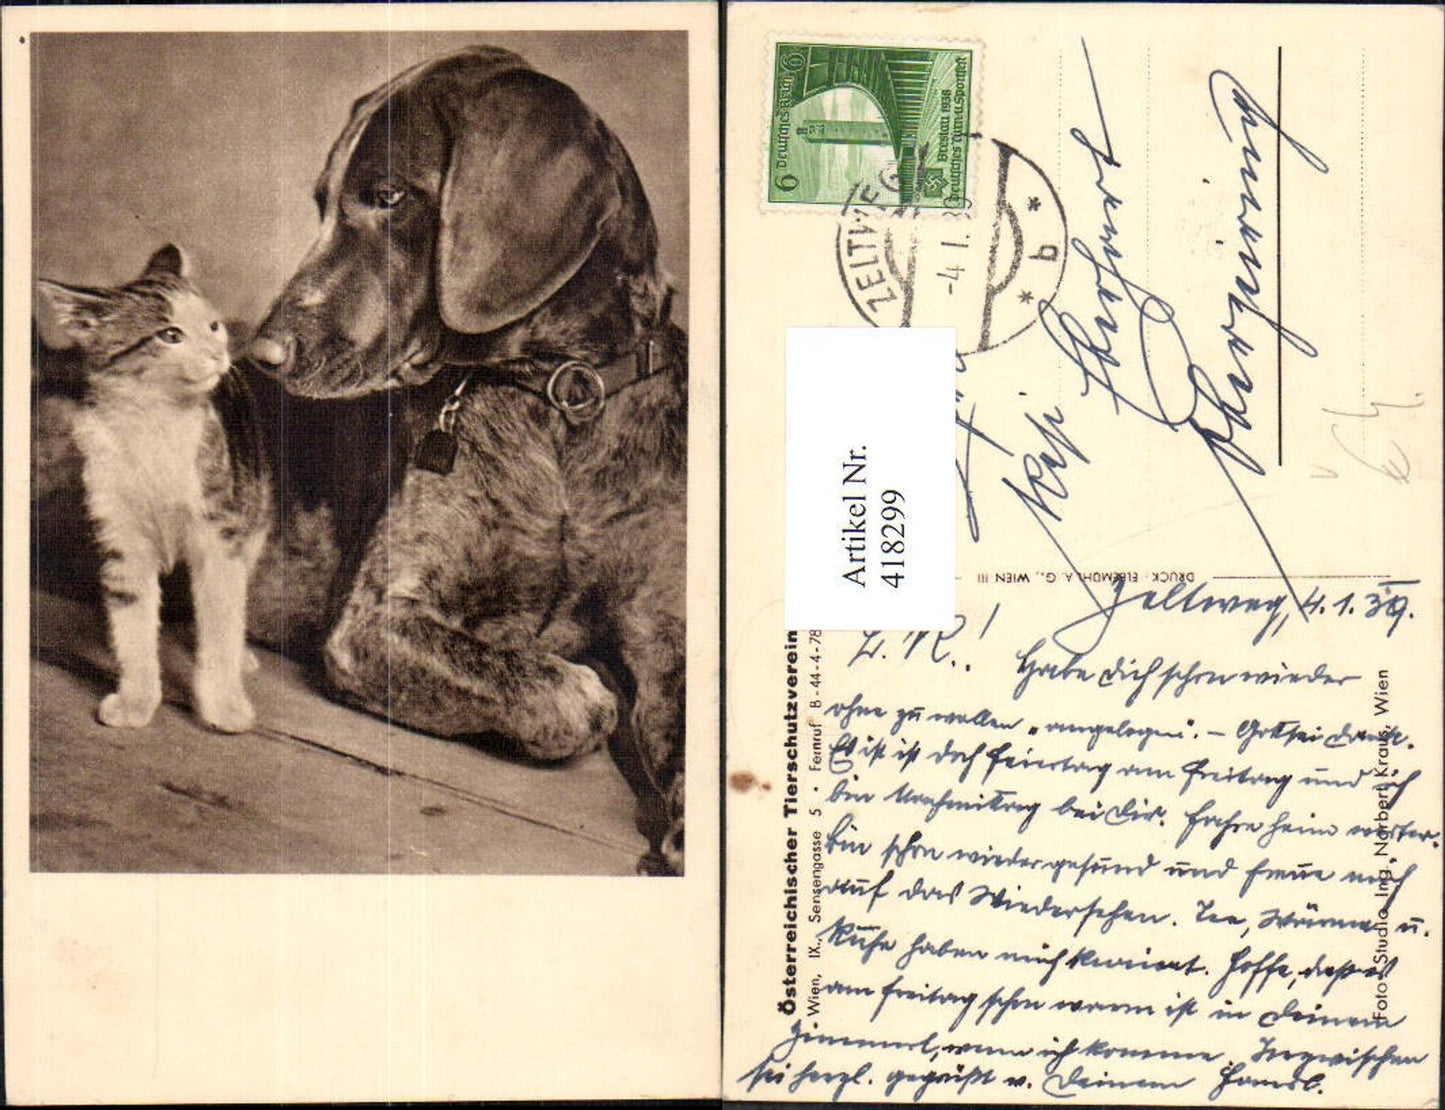 Deutsches Reich
6
6
Breslau 1938
Deutsches Turn-u.Sportfest
ZELTWEG
-4.1.39
* b *
Artikel Nr.
418299
Eberhard
DRUCK · ELBEMÜHL A. G., WIEN III
Österreichischer Tierschutzverein
Wien, IX., Sensengasse 5 · Fernruf B-44-4-78
Foto Studio Ing. Norbert Kraus, Wien
Zeltweg, 4.1.39.
L. R.!
Habe Dich schon wieder
ohne zu wollen „angelogen“. – Gott sei Dank.
Es ist ja doch Feiertag am Freitag und ich
bin Nachmittag bei Dir. Fahre heim
Bin schon wieder gesund und freue mich
auf das Wiedersehen. Tee, Wärme u.
Ruhe haben mich kuriert. Hoffe, daß es
am Freitag schon warm ist in Deinem
Zimmerl, wenn ich komme. Inzwischen
sei herzl. gegrüßt v. Deinem